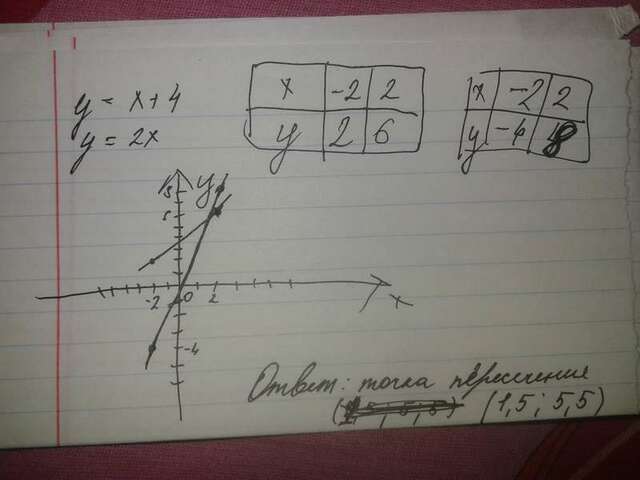 y = x+4
x -2 2
y 2 6
x -2 2
y -4 8
y = 2x
y
-2 0 2
x
-4
Ответ: точка пересечения
(1,5 ; 5,5)